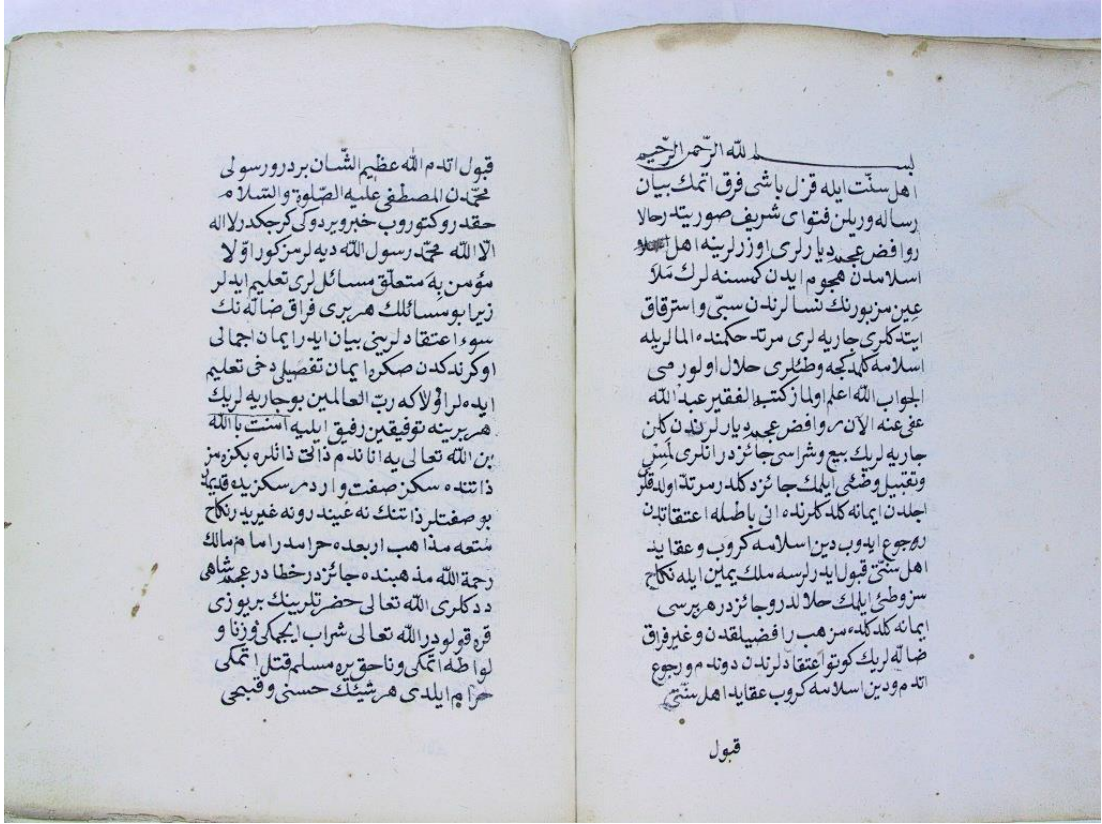 بسم الله الرّحمن الرّحيم
اهل سنّت ايله قزل باشى فرق اتمك بيان
رساله وريلن فتواى شريف صوريتدر حالا
روافض عجم ديارلرى اوزرلرينه اهل
اسلامدن هجوم ايدن كمسنه لرك ملا
عين مزبورنك نسالرندن سبى واسترقاق
ايتدكلرى جاريه لرى مرتد حكمنده المالريله
اسلامه كلمدكجه وطئلرى حلال اولور مى
الجواب الله اعلم اولماز كتبه الفقير عبد الله
عفى عنه الآن روافض عجم ديارلرندن كلن
جاريه لريك بيع وشراسى جائزدر انلرى لمس
وتقبيل وضئى ايلمك جائز دكلدر مرتد اولدقلر
اجلدن ايمانه كلدكلرنده انى باطله اعتقاتدن
رجوع ايدوب دين اسلامه كروب وعقايد
اهل سنّتى قبول ايدرلرسه ملك يمين ايله نكاح
سز وطئ ايلمك حلالدر وجائزدر هر برسى
ايمانه كلدكده مزهب رافضيلقدن وغير فراق
ضالّه لريك كوتو اعتقادلرندن دوندم ورجوع
اتدم ودين اسلامه كروب عقايد اهل سنّتى
قبول
قبول اتدم الله عظيم الشّان بردر ورسولى
محمّدن المصطفى عليه الصّلوة والسّلام
حقدر وكتوروب خبر ويردوكى كرجكدر لااله
الّا الله محمّد رسول الله ديه لر مزكور اوّلا
مؤمن به متعلّق مسائللرى تعليم ايدلر
زيرا بو مسائلك هر برى فراق ضالّه نك
سوء اعتقادلرينى بيان ايدر ايمان اجمالى
اوكرندكدن صكره ايمان تفصيلى دخى تعليم
ايده لر اولاكه ربّ العالمين بو جاريه لريك
هر برينه توفيقين رفيق ايليه آمنت باالله
بن الله تعالى يه اناندم ذاتى ذاتلره بكزه مز
ذاتنده سكز صفت واردر سكزيده قديمدر
بو صفتلر ذاتنك نه عيندر ونه غيريدر نكاح
متعه مذاهب اربعده حرامدر امام مالك
رحمة الله مذهبنده جائزدر خطادر عجم شاهى
ددكلرى الله تعالى حضرتلرينك بر يوزى
قره قولودر الله تعالى شراب ايجمكى وزنا و
لواطه اتمكى وناحق يره مسلم قتل اتمكى
حرام ايلدى هر شيئك حسنى وقبيحى